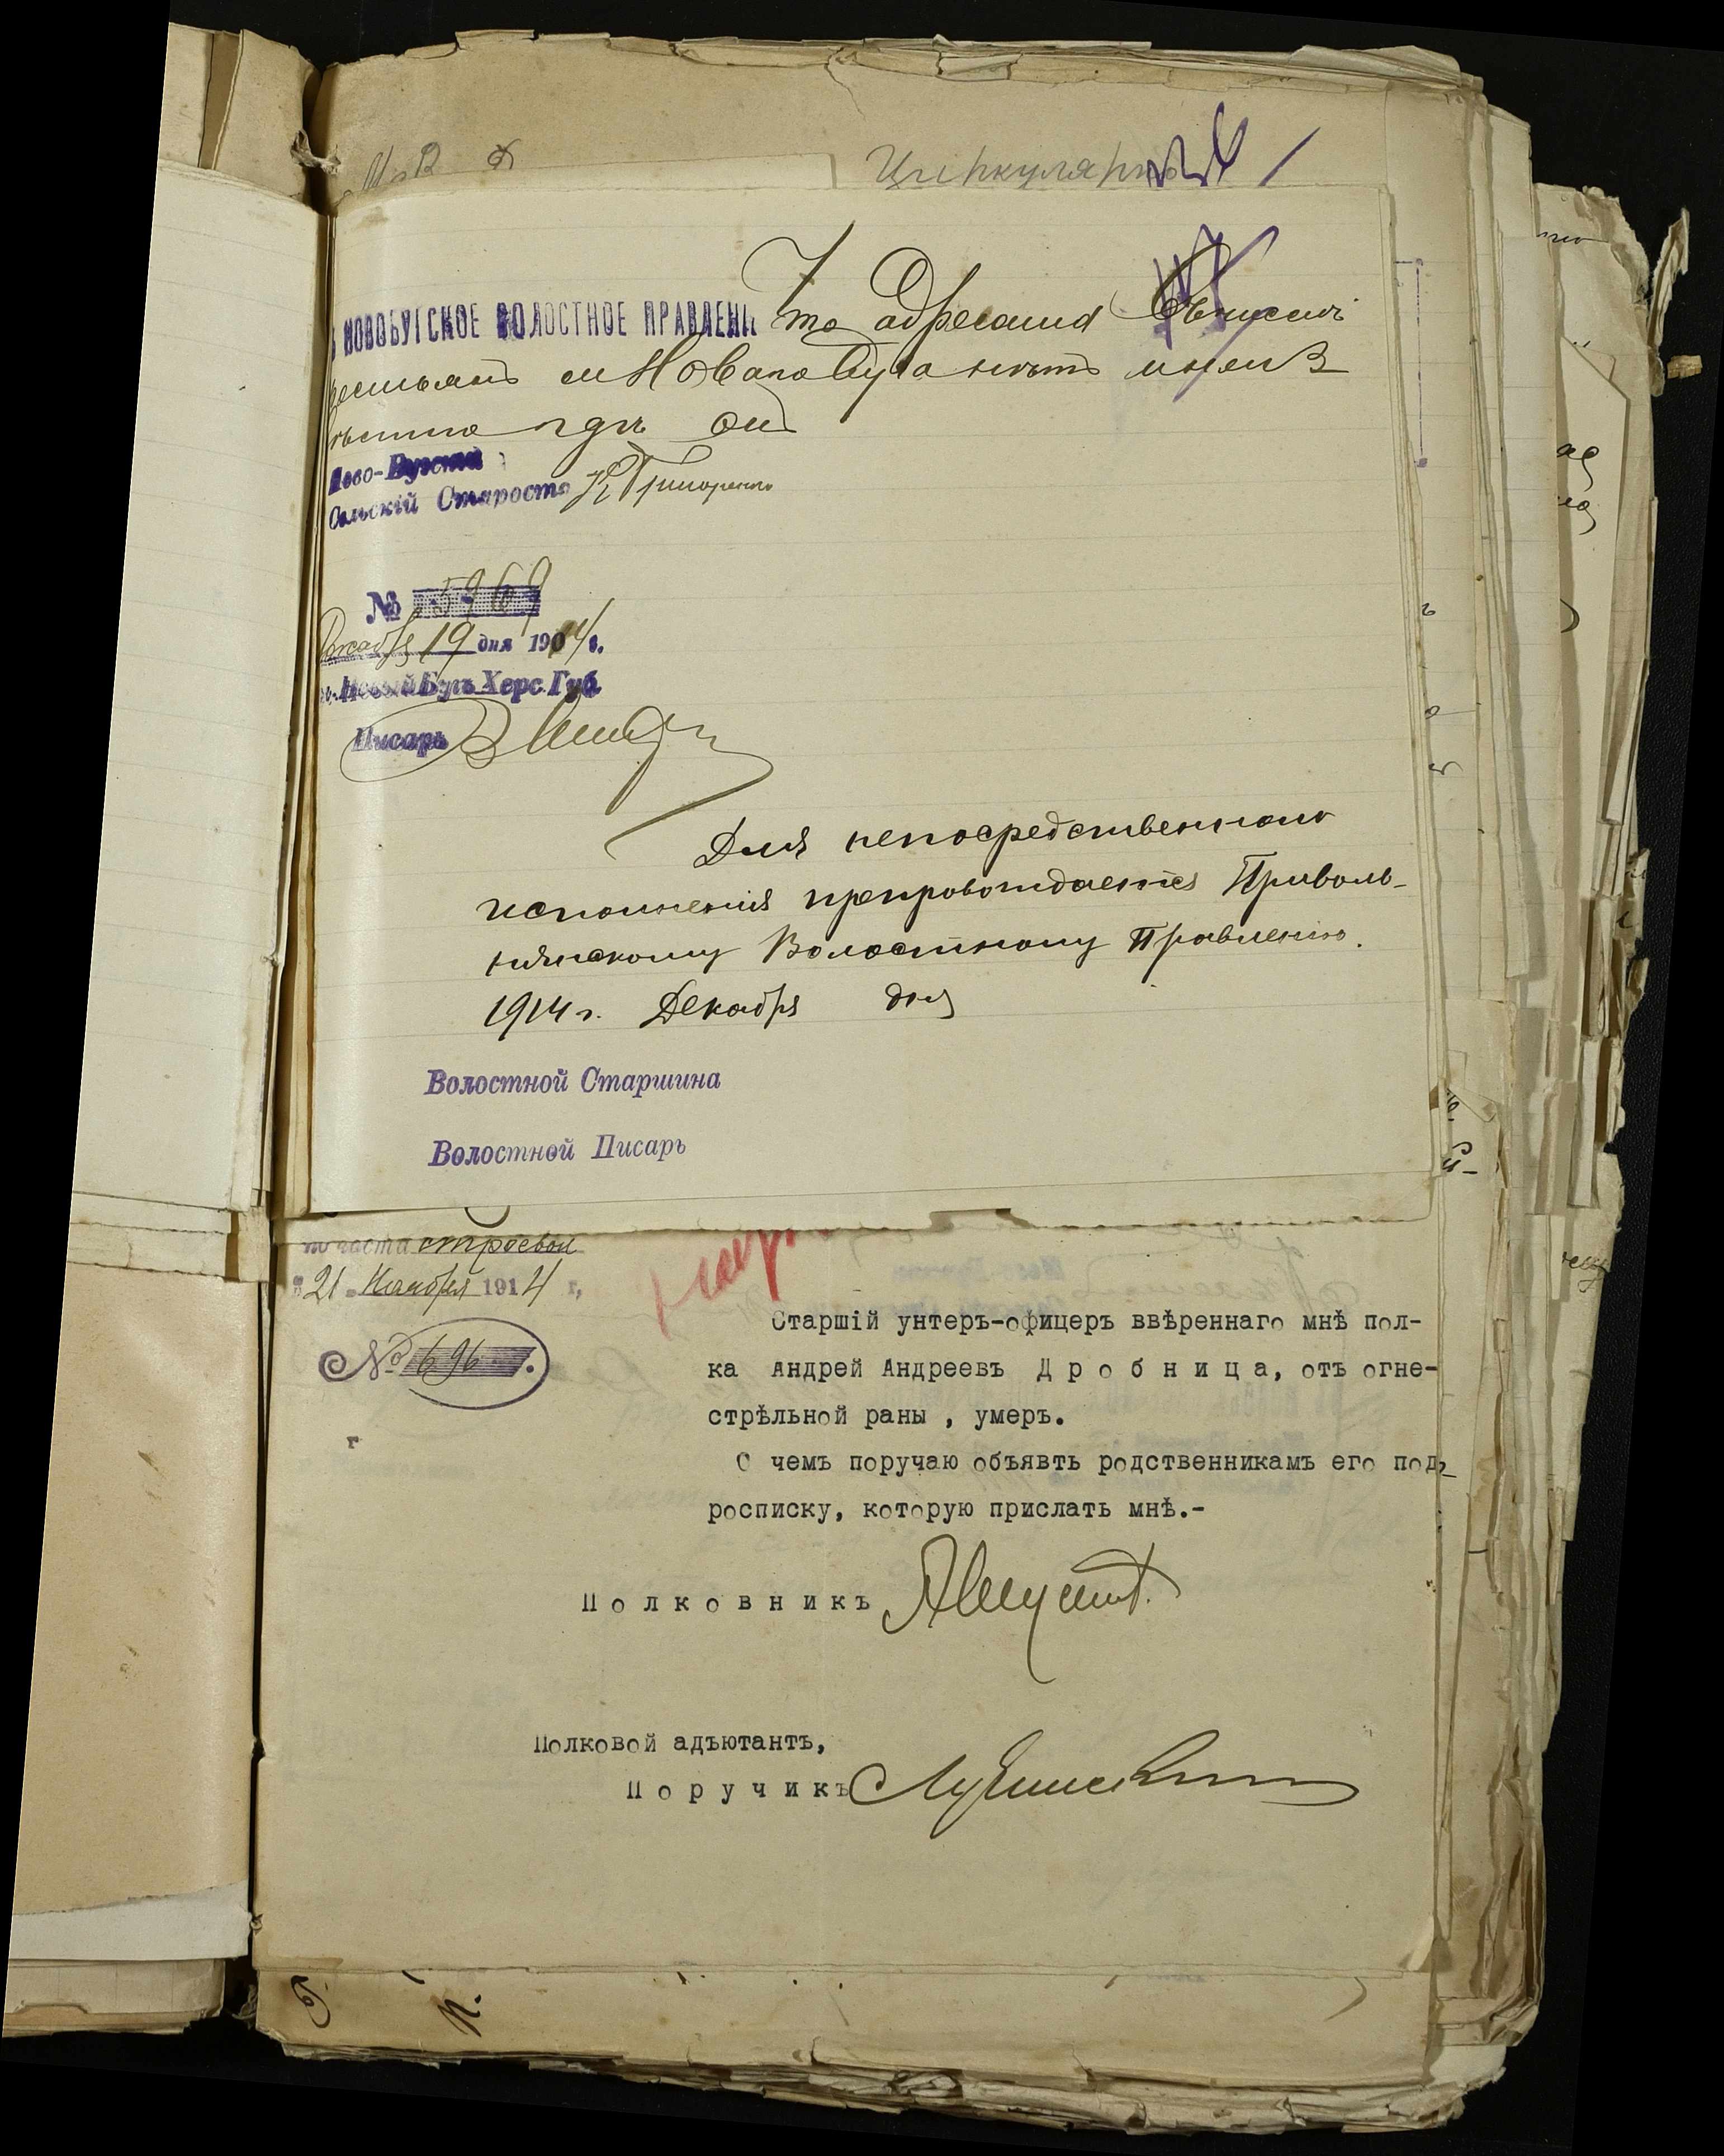 М В Д
Циркулярно
НОВОБУГСКОЕ ВОЛОСТНОЕ ПРАВЛЕНІ Что адресата
крестьянъ м Новаго Буга нѣтъ и неиз
вѣстно гдѣ он
Ново-Бугскій
Сельскій Староста
№ 5969
Декабря 19 дня 1914 г.
м. Новый Бугъ Херс. Губ.
Писарь
Для непосредственнаго
исполненія препровождается Приволь-
нянскому Волостному Правленію.
1914 г. Декабря дня
Волостной Старшина
Волостной Писарь
по части строевой
21 Ноября 1914 г,
№ 696.
Старшій унтеръ-офицеръ ввѣреннаго мнѣ пол-
ка Андрей Андреевъ Д р о б н и ц а, отъ огне-
стрѣльной раны , умеръ.
О чемъ поручаю объявть родственникамъ его подъ
росписку, которую прислать мнѣ.-
П о л к о в н и к ъ
Полковой адъютантъ,
П о р у ч и к ъ